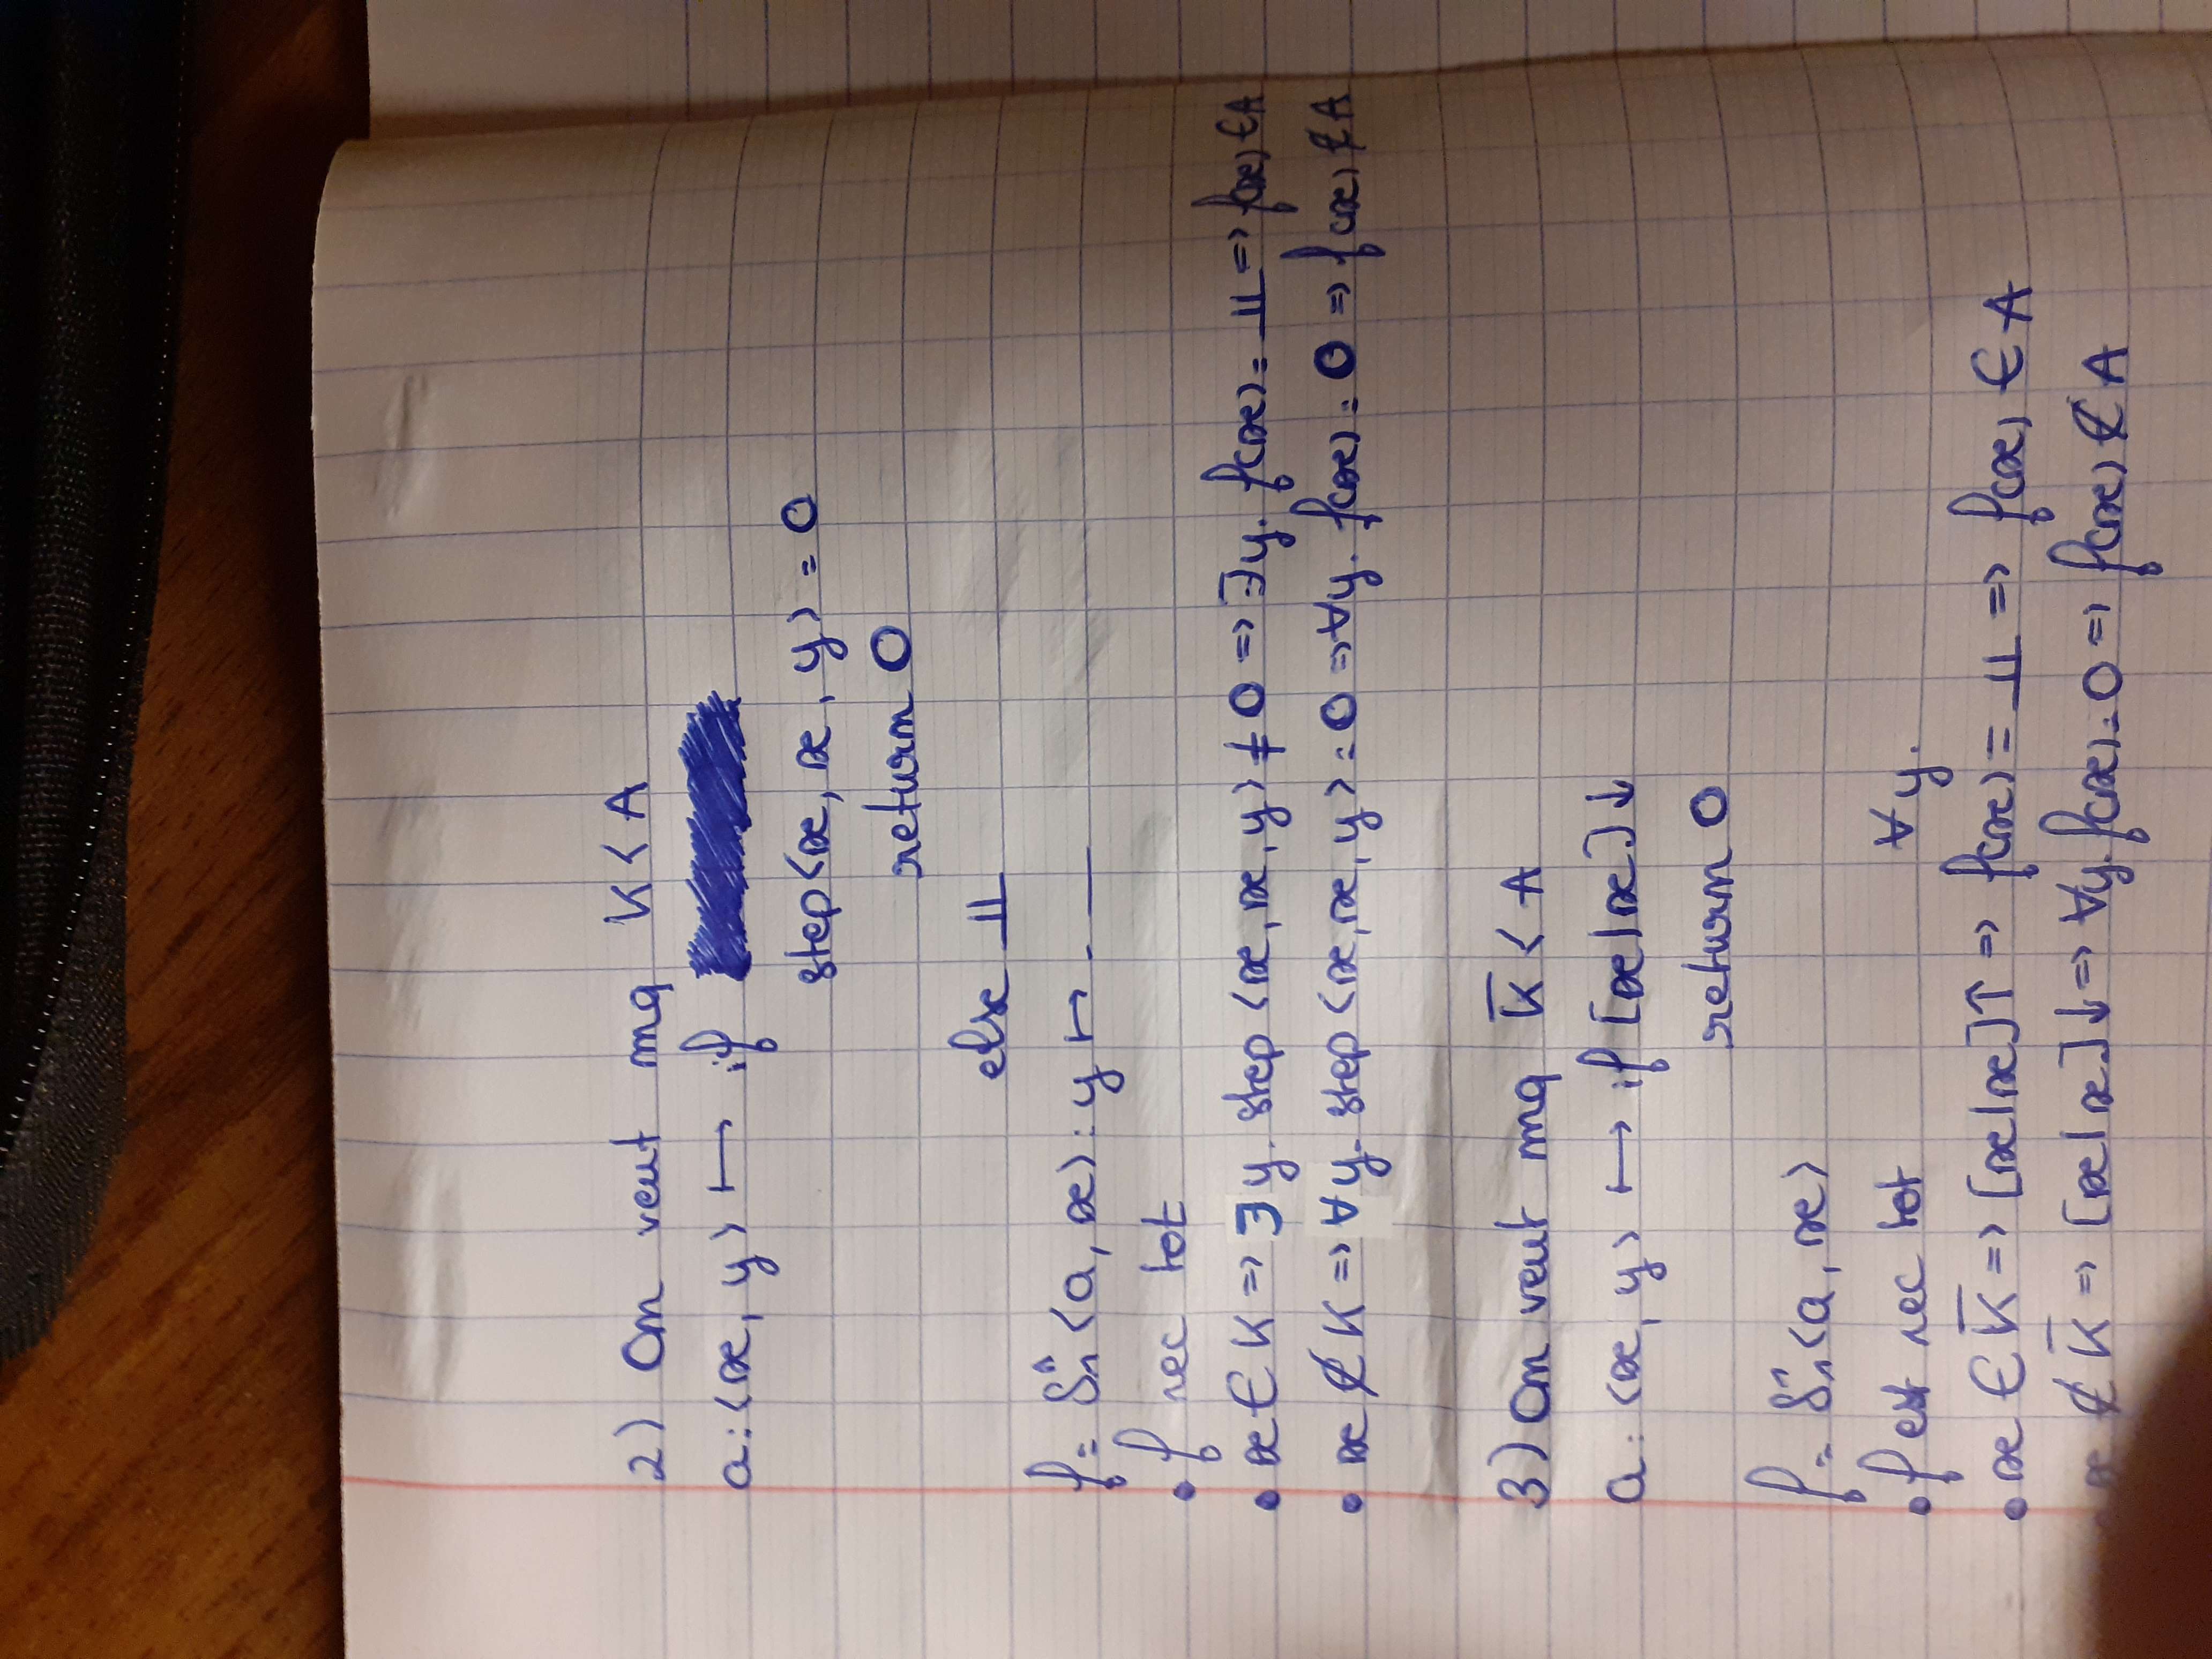 2) On veut mq K < A
a: <x, y> ↦ if
step <x, x, y> = 0
return 0
else ⊥⊥
f = S¹₁ <a, x> : y ↦ - —
• f rec tot
• x ∈ K => ∃y. step <x, x, y> ≠ 0 => ∃y. f(x) = ⊥⊥ => f(x) ∈ A
• x ∉ K => ∀y. step <x, x, y> = 0 => ∀y. f(x) = 0 => f(x) ∉ A
3) On veut mq K̅ < A
a: <x, y> ↦ if [x|x]↓
return 0
f = S¹₁ <a, x>
• f est rec tot
∀y.
• x ∈ K̅ => [x|x]↑ => f(x) = ⊥⊥ => f(x) ∈ A
x ∉ K̅ => [x|x]↓ => ∀y. f(x) = 0 => f(x) ∉ A